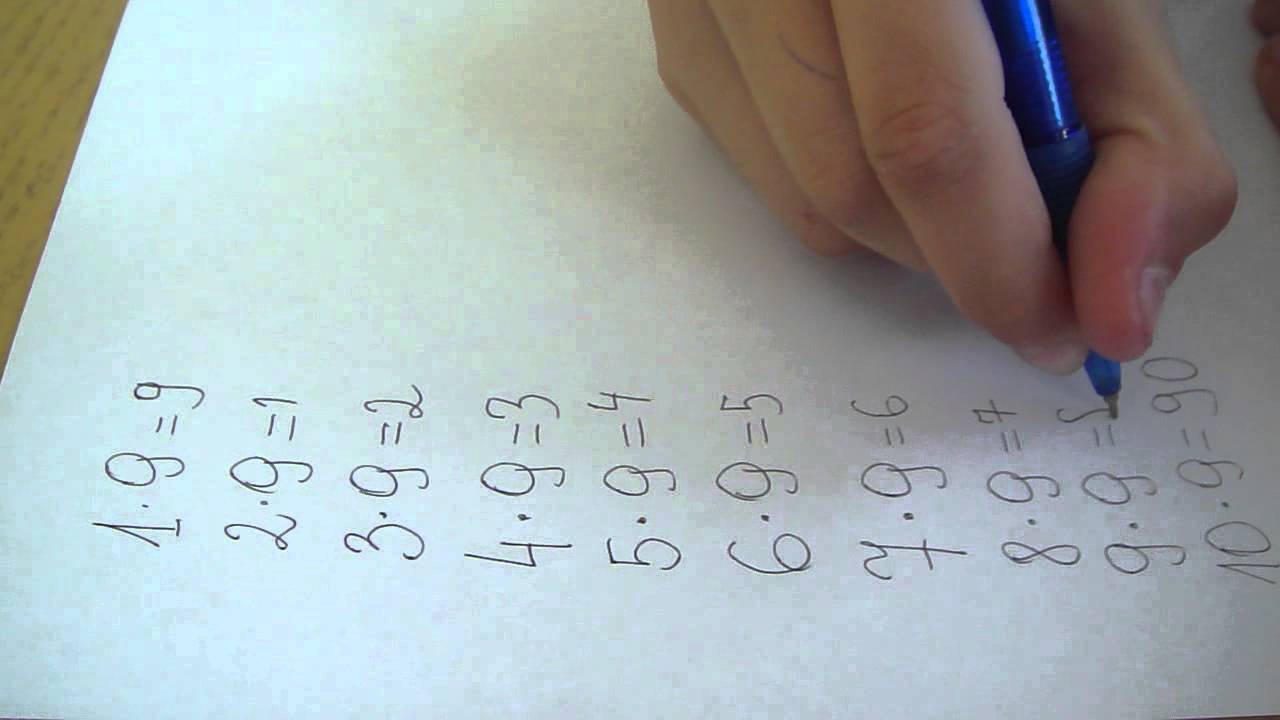 1·9=9
2·9=1
3·9=2
4·9=3
5·9=4
6·9=5
7·9=6
8·9=7
9·9=
10·9=90